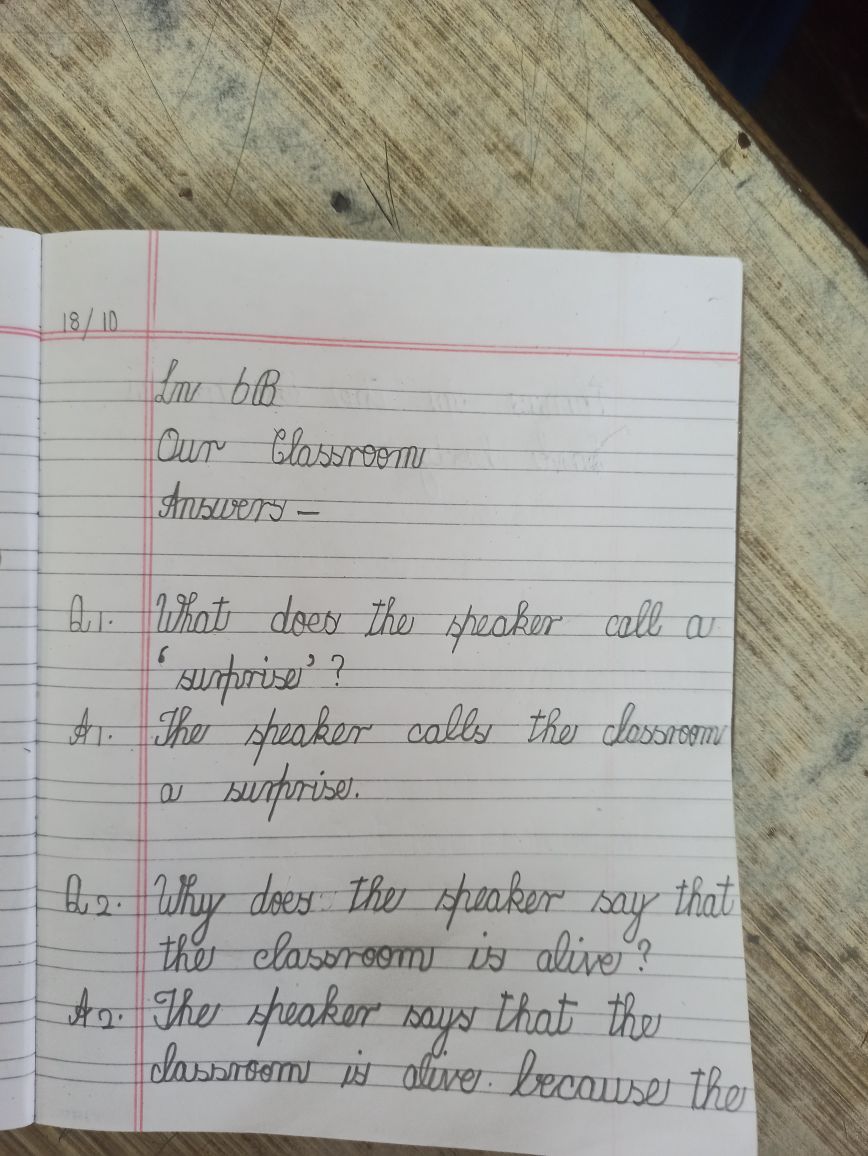 18/10
Ln 6B
Our Classroom
Answers –
Q1. What does the speaker call a
'surprise'?
A1. The speaker calls the classroom
a surprise.
Q2. Why does the speaker say that
the classroom is alive?
A2. The speaker says that the
classroom is alive. because the